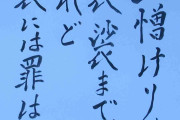 憎けり
裟まで
れど
には罪は